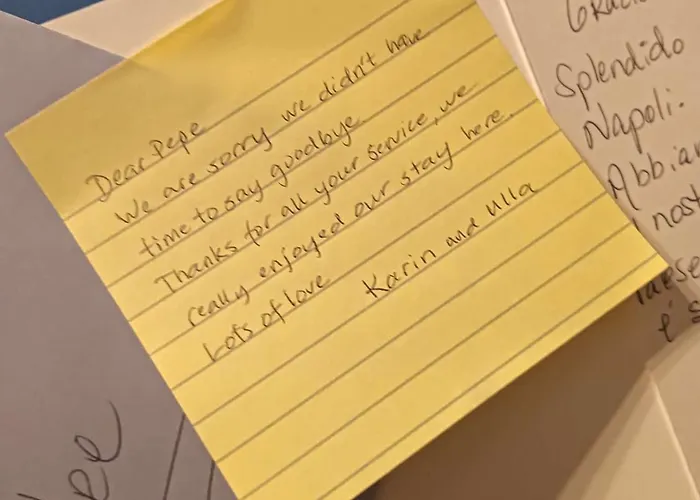 Dear Pepe
We are sorry we didn't have
time to say goodbye
Thanks for all your service, we
really enjoyed our stay here.
Lots of love
Karin and Ulla
Splendido
Napoli.
Abbiam
nost
è s